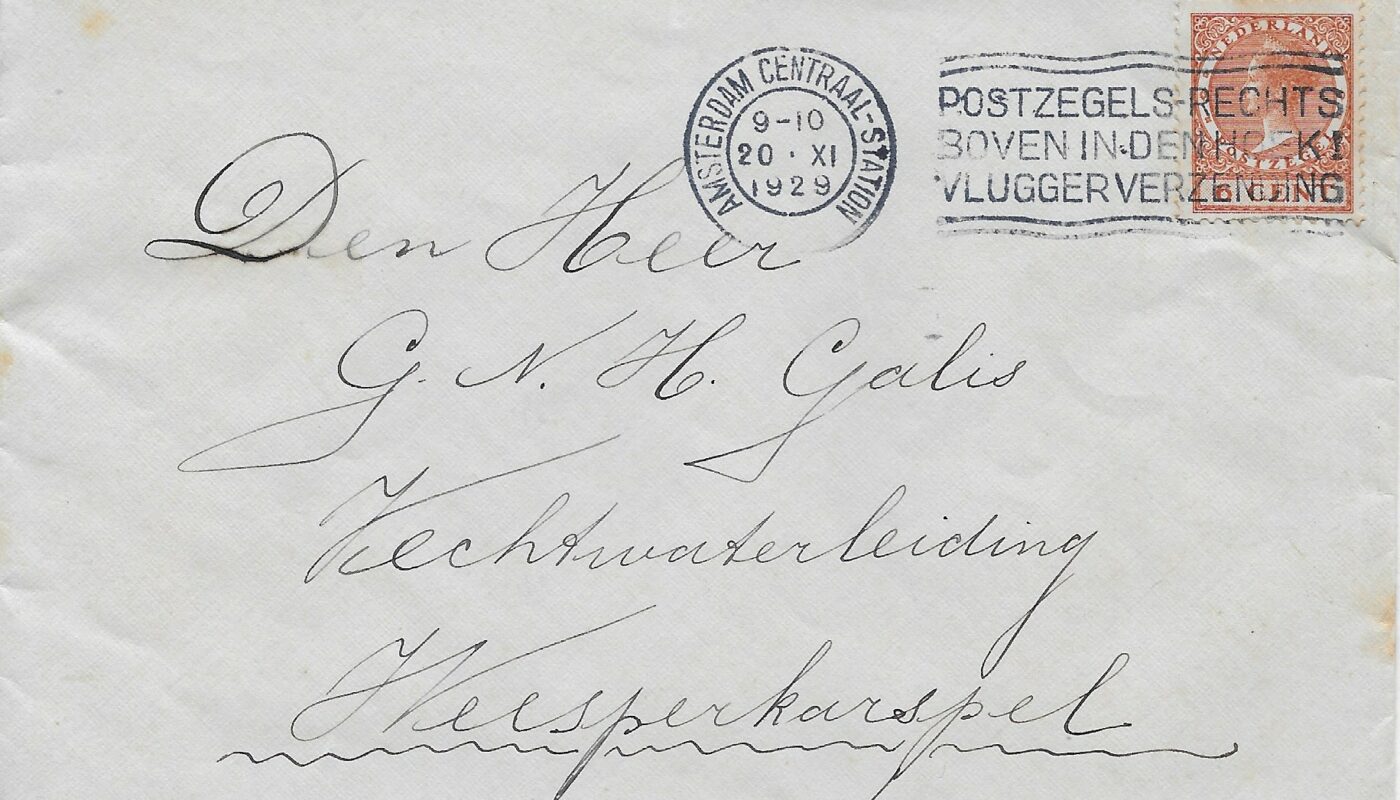 AMSTERDAM CENTRAAL-STATION
9-10
20 · XI
1929
POSTZEGELS-RECHTS
BOVEN IN DEN HOEK!
VLUGGER VERZENDING
NEDERLAND
POSTZEGEL
6 CENT
Den Heer
G. N. H. Galis
Vechtwaterleiding
Weesperkarspel